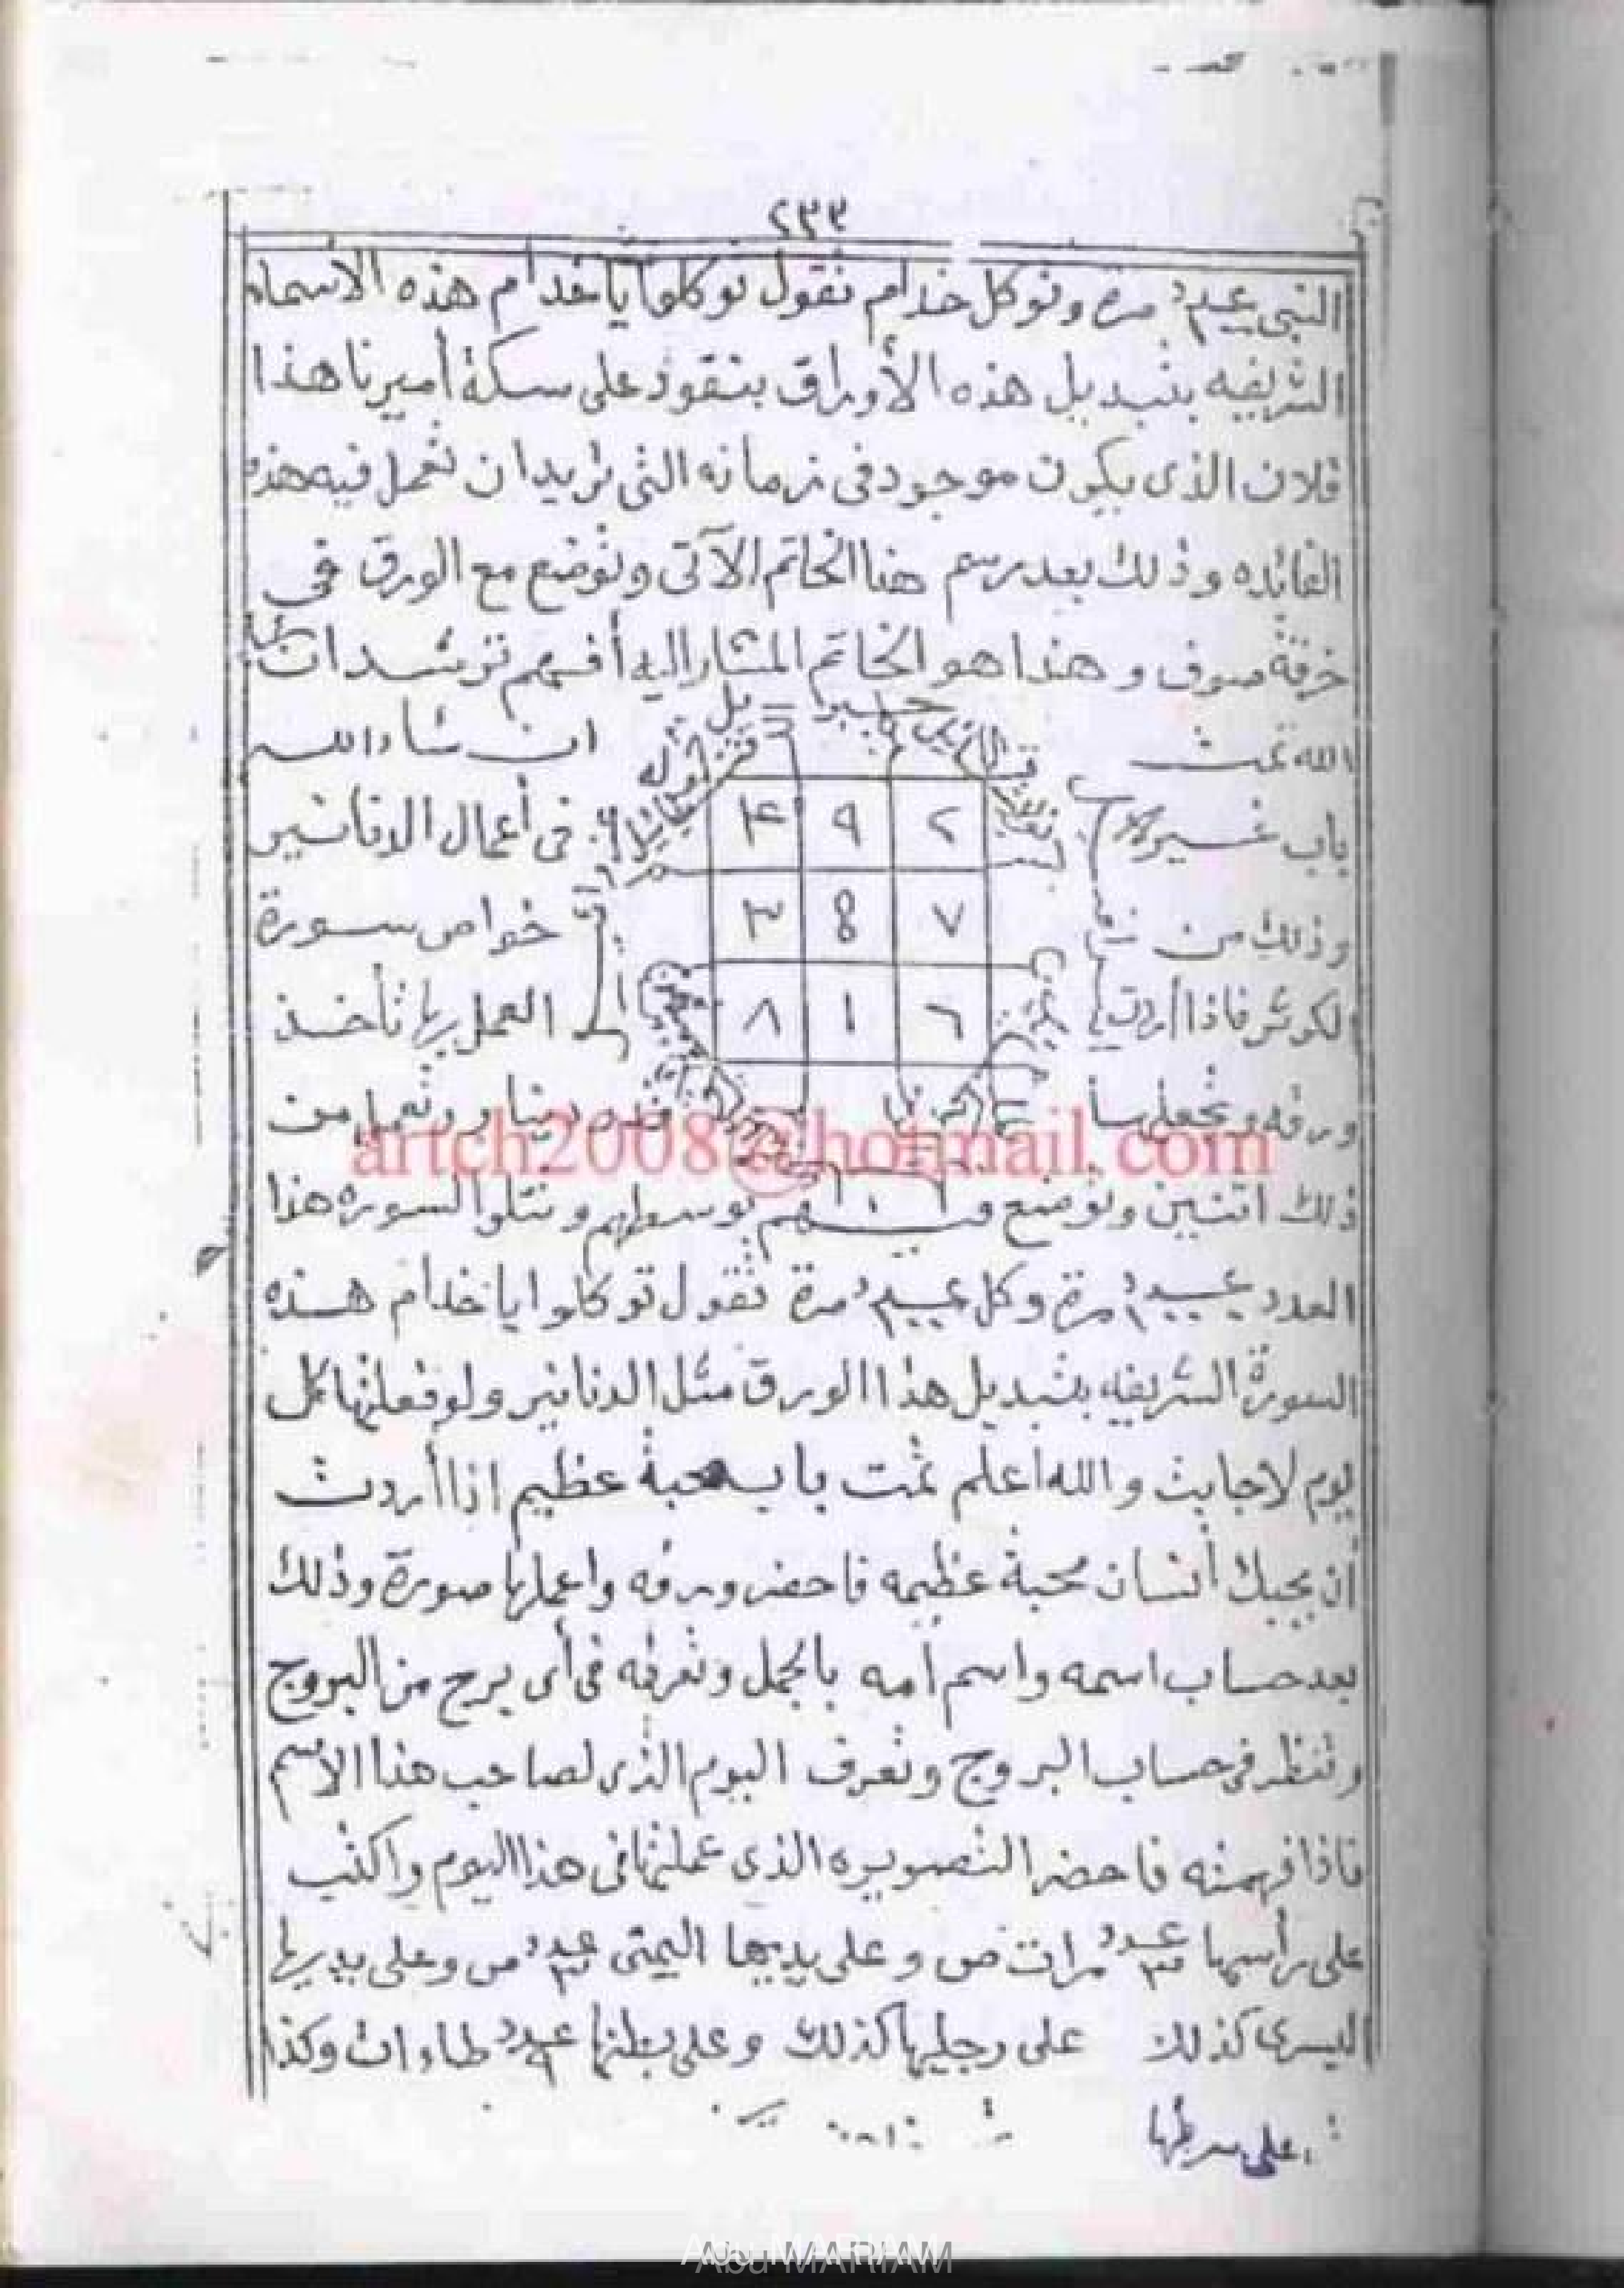 ٢٣٣
النبى عدد مرة وتوكل خدام تقول توكلوا يا خدام هذه الاسماء
الشريفه بتبديل هذه الأوراق بنقود على سكة أميرنا هذا
فلان الذى يكون موجود فى زمانه التى تريد ان تعمل فيه هذه
الفائده وذلك بعد رسم هذا الخاتم الآتى وتوضع مع الورق فى
خرقة صوف وهذا هو الخاتم المشار اليه أفهم ترشد ان شاء
الله تمت ان شاء الله
باب غيره فى أعمال الدنانير
وذلك من خواص سورة
الكوثر فاذا أردت العمل بها تأخذ
ورقه وتجعلها قدر دينار وتعمل من
ذلك اتنين وتوضع بوسطهم وتتلوا السوره هذا
العدد مرة وكل مرة تقول توكلوا يا خدام هذه
السورة الشريفه بتبديل هذا الورق مثل الدنانير ولو فعلتها كل
يوم لاجابت والله اعلم تمت باب محبة عظيم اذا أردت
أن يحبك أنسان محبة عظيمه فاحضر ورقه واعملها صورة وذلك
بعد حساب اسمه واسم أمه بالجمل وتعرفه فى أى برج من البروج
وتنظر فى حساب البروج وتعرف اليوم الذى لصاحب هذا الاسم
فاذا فهمته فاحضر التصويره الذى عملتها فى هذا اليوم واكتب
على رأسها عدد مرات ص وعلى يديها اليمتى عدد ص وعلى يديها
اليسرى كذلك على رجليها كذلك وعلى بطنها عدد طاءات وكذا
على
٤ ٩ ٢
٣ 8 ٧
٨ ١ ٦
artch2008@hotmail.com
Abu MARIAM